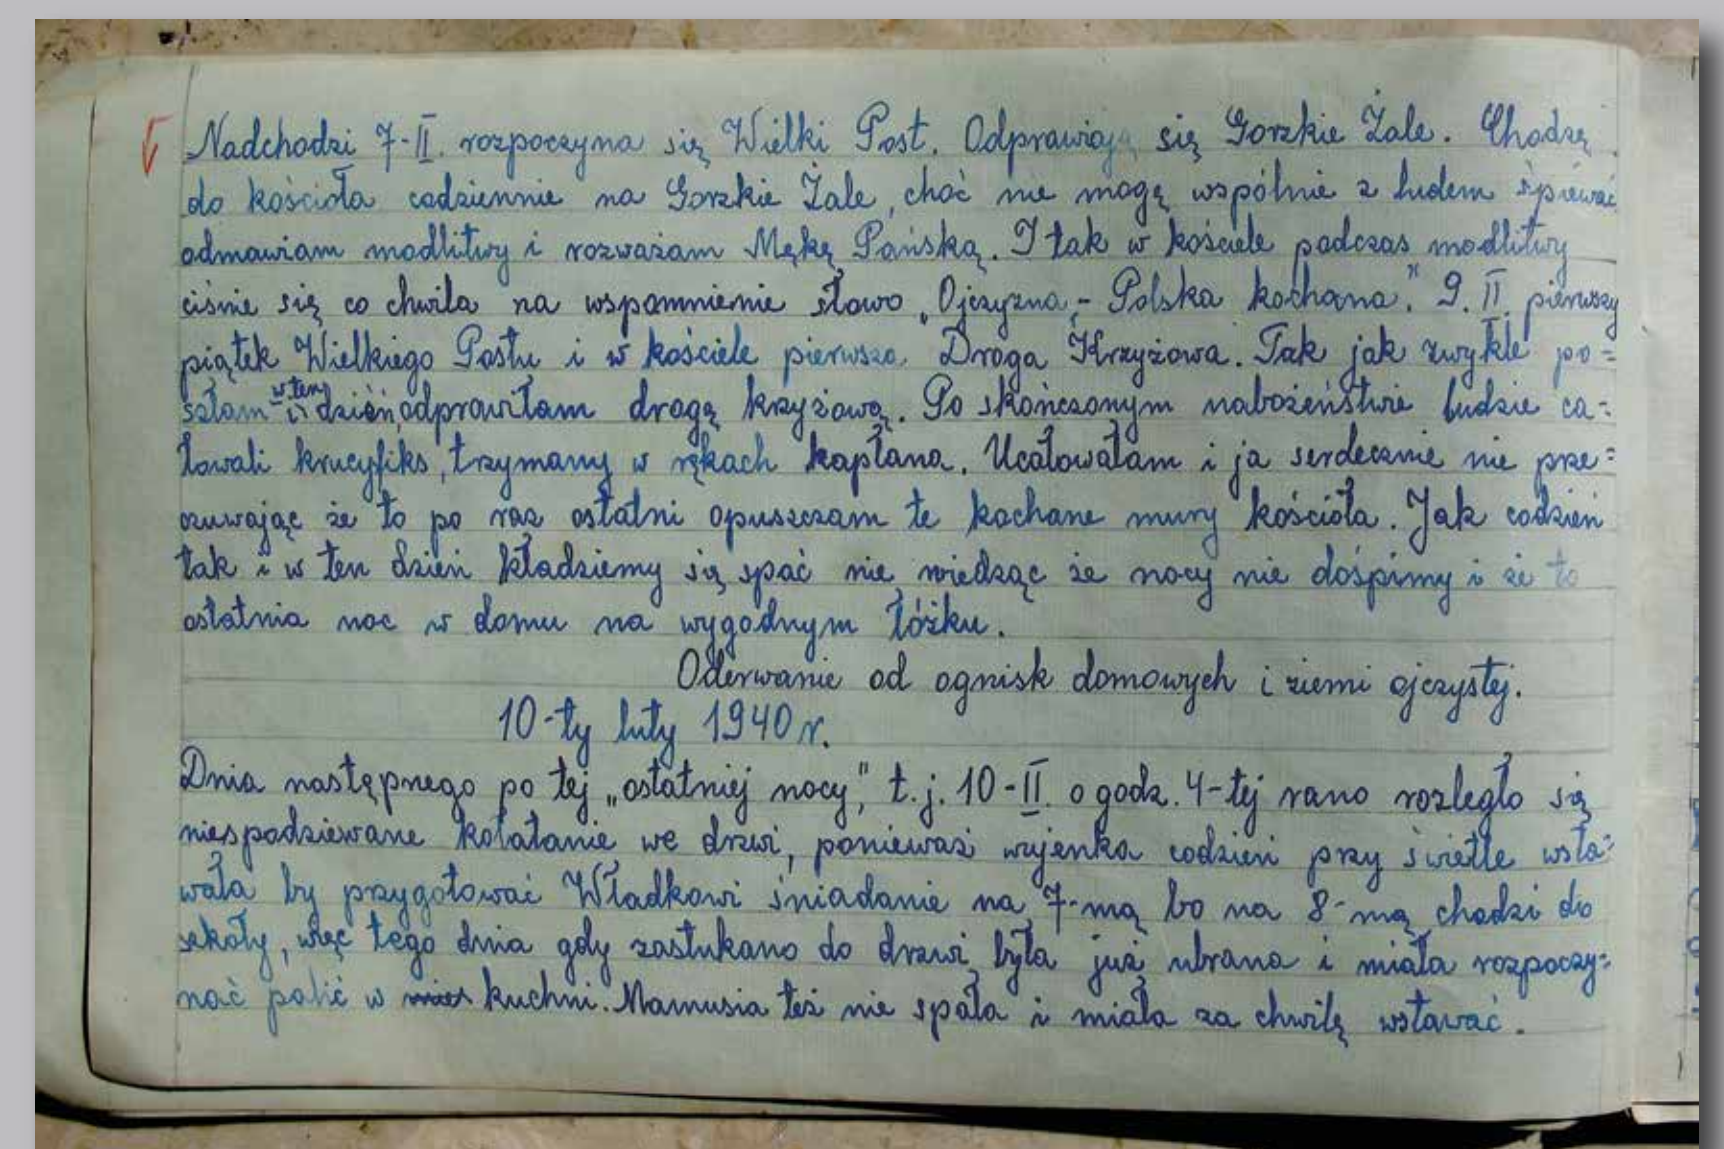 Nadchodzi 7-II. rozpoczyna się Wielki Post. Odprawiają się Gorzkie Żale. Chodzę
do kościoła codziennie na Gorzkie Żale, choć nie mogę wspólnie z ludem śpiewać
odmawiam modlitwy i rozważam Mękę Pańską. I tak w kościele podczas modlitwy
ciśnie się co chwila na wspomnienie słowo „Ojczyzna,- Polska kochana." 9. II. pierwszy
piątek Wielkiego Postu i w kościele pierwsza Droga Krzyżowa. Tak jak zwykle po=
szłam i w ten dzień, odprawiłam drogę krzyżową. Po skończonym nabożeństwie ludzie ca=
łowali krucyfiks, trzymany w rękach kapłana. Ucałowałam i ja serdecznie nie prze=
czuwając że to po raz ostatni opuszczam te kochane mury kościoła. Jak codzień
tak i w ten dzień kładziemy się spać nie wiedząc że nocy nie dośpimy i że to
ostatnia noc w domu na wygodnym łóżku.
Oderwanie od ognisk domowych i ziemi ojczystej.
10-ty luty 1940 r.
Dnia następnego po tej „ostatniej nocy," t.j. 10-II. o godz. 4-tej rano rozległo się
niespodziewane kołatanie we drzwi, ponieważ wujenka codzień przy świetle wsta=
wała by przygotować Władkowi śniadanie na 7-mą bo na 8-mą chodzi do
szkoły, więc tego dnia gdy zastukano do drzwi była już ubrana i miała rozpoczy=
nać palić w kuchni. Mamusia też nie spała i miała za chwilę wstawać.